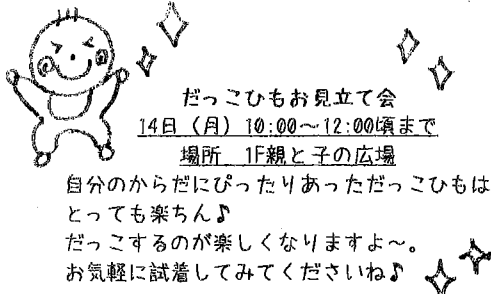 だっこひもお見立て会
14日（月）10:00～12:00頃まで
場所　1F親と子の広場
自分のからだにぴったりあっただっこひもは
とっても楽ちん♪
だっこするのが楽しくなりますよ～。
お気軽に試着してみてくださいね♪